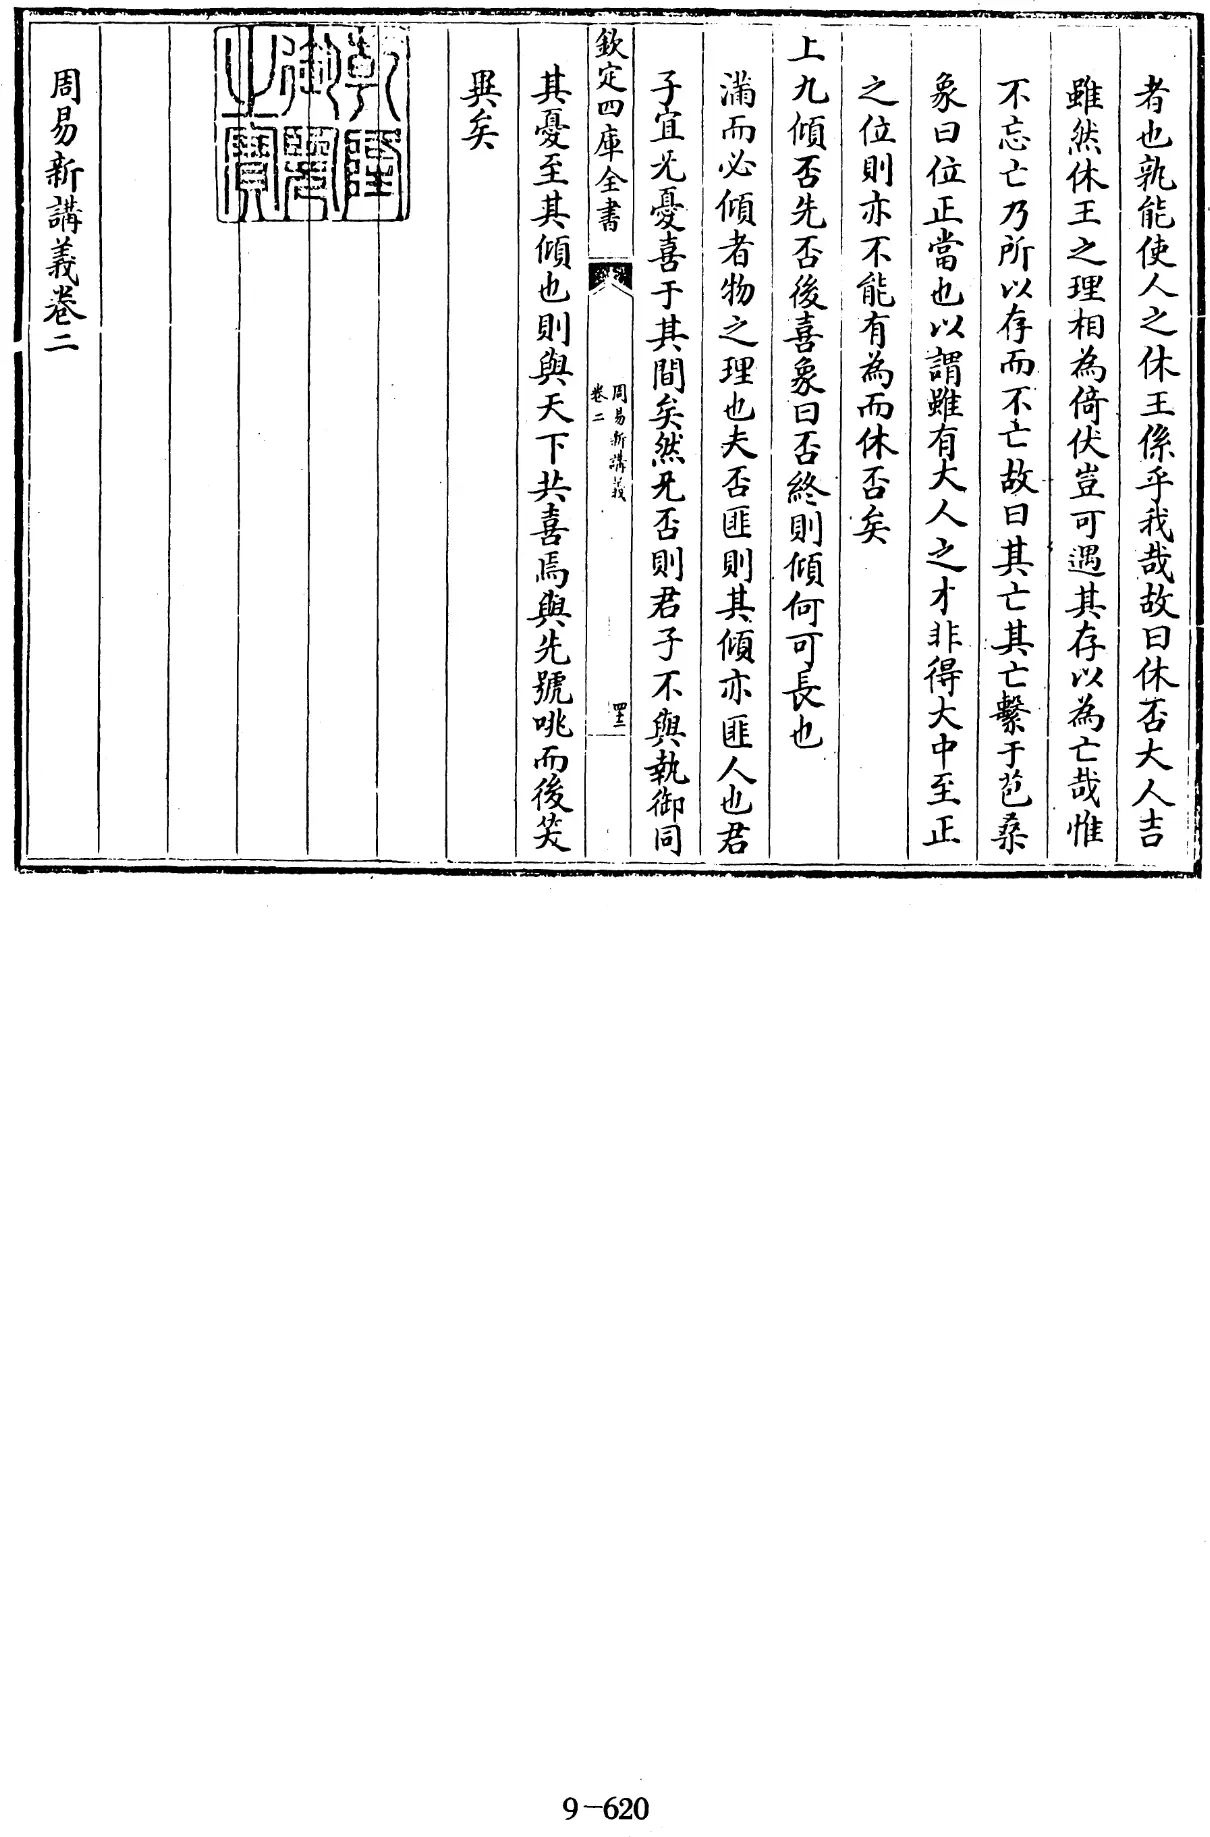 者也孰能使人之休王係乎我哉故曰休否大人吉
雖然休王之理相為倚伏豈可遇其存以為亡哉惟
不忘亡乃所以存而不亡故曰其亡其亡繫于苞桑
象曰位正當也以謂雖有大人之才非得大中至正
之位則亦不能有為而休否矣
上九傾否先否後喜象曰否終則傾何可長也
滿而必傾者物之理也夫否匪則其傾亦匪人也君
子宜无憂喜于其間矣然旡否則君子不與執御同
欽定四庫全書
周易新講義
卷二
四三
其憂至其傾也則與天下共喜焉與先號咷而後笑
異矣
乾隆御覽之寶
周易新講義卷二
9-620